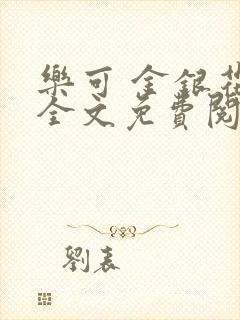 樂可 金銀花
全文免費閱
劉表